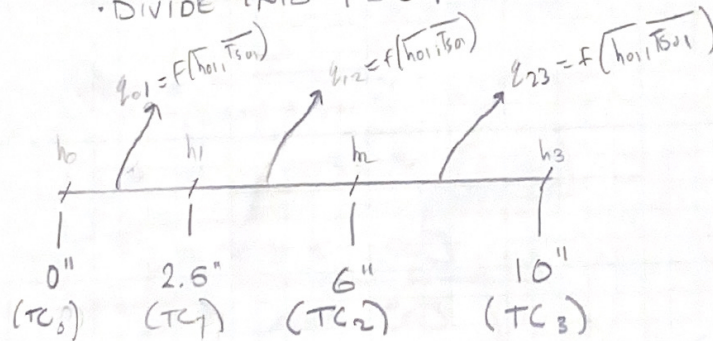 • DIVIDE INTO
q01 = F(h̅01, T̅s01)
q12 = f(h̅01, T̅s01)
q23 = f(h̅01, T̅s01)
h0 h1 h2 h3
0" 2.5" 6" 10"
(TC0) (TC1) (TC2) (TC3)